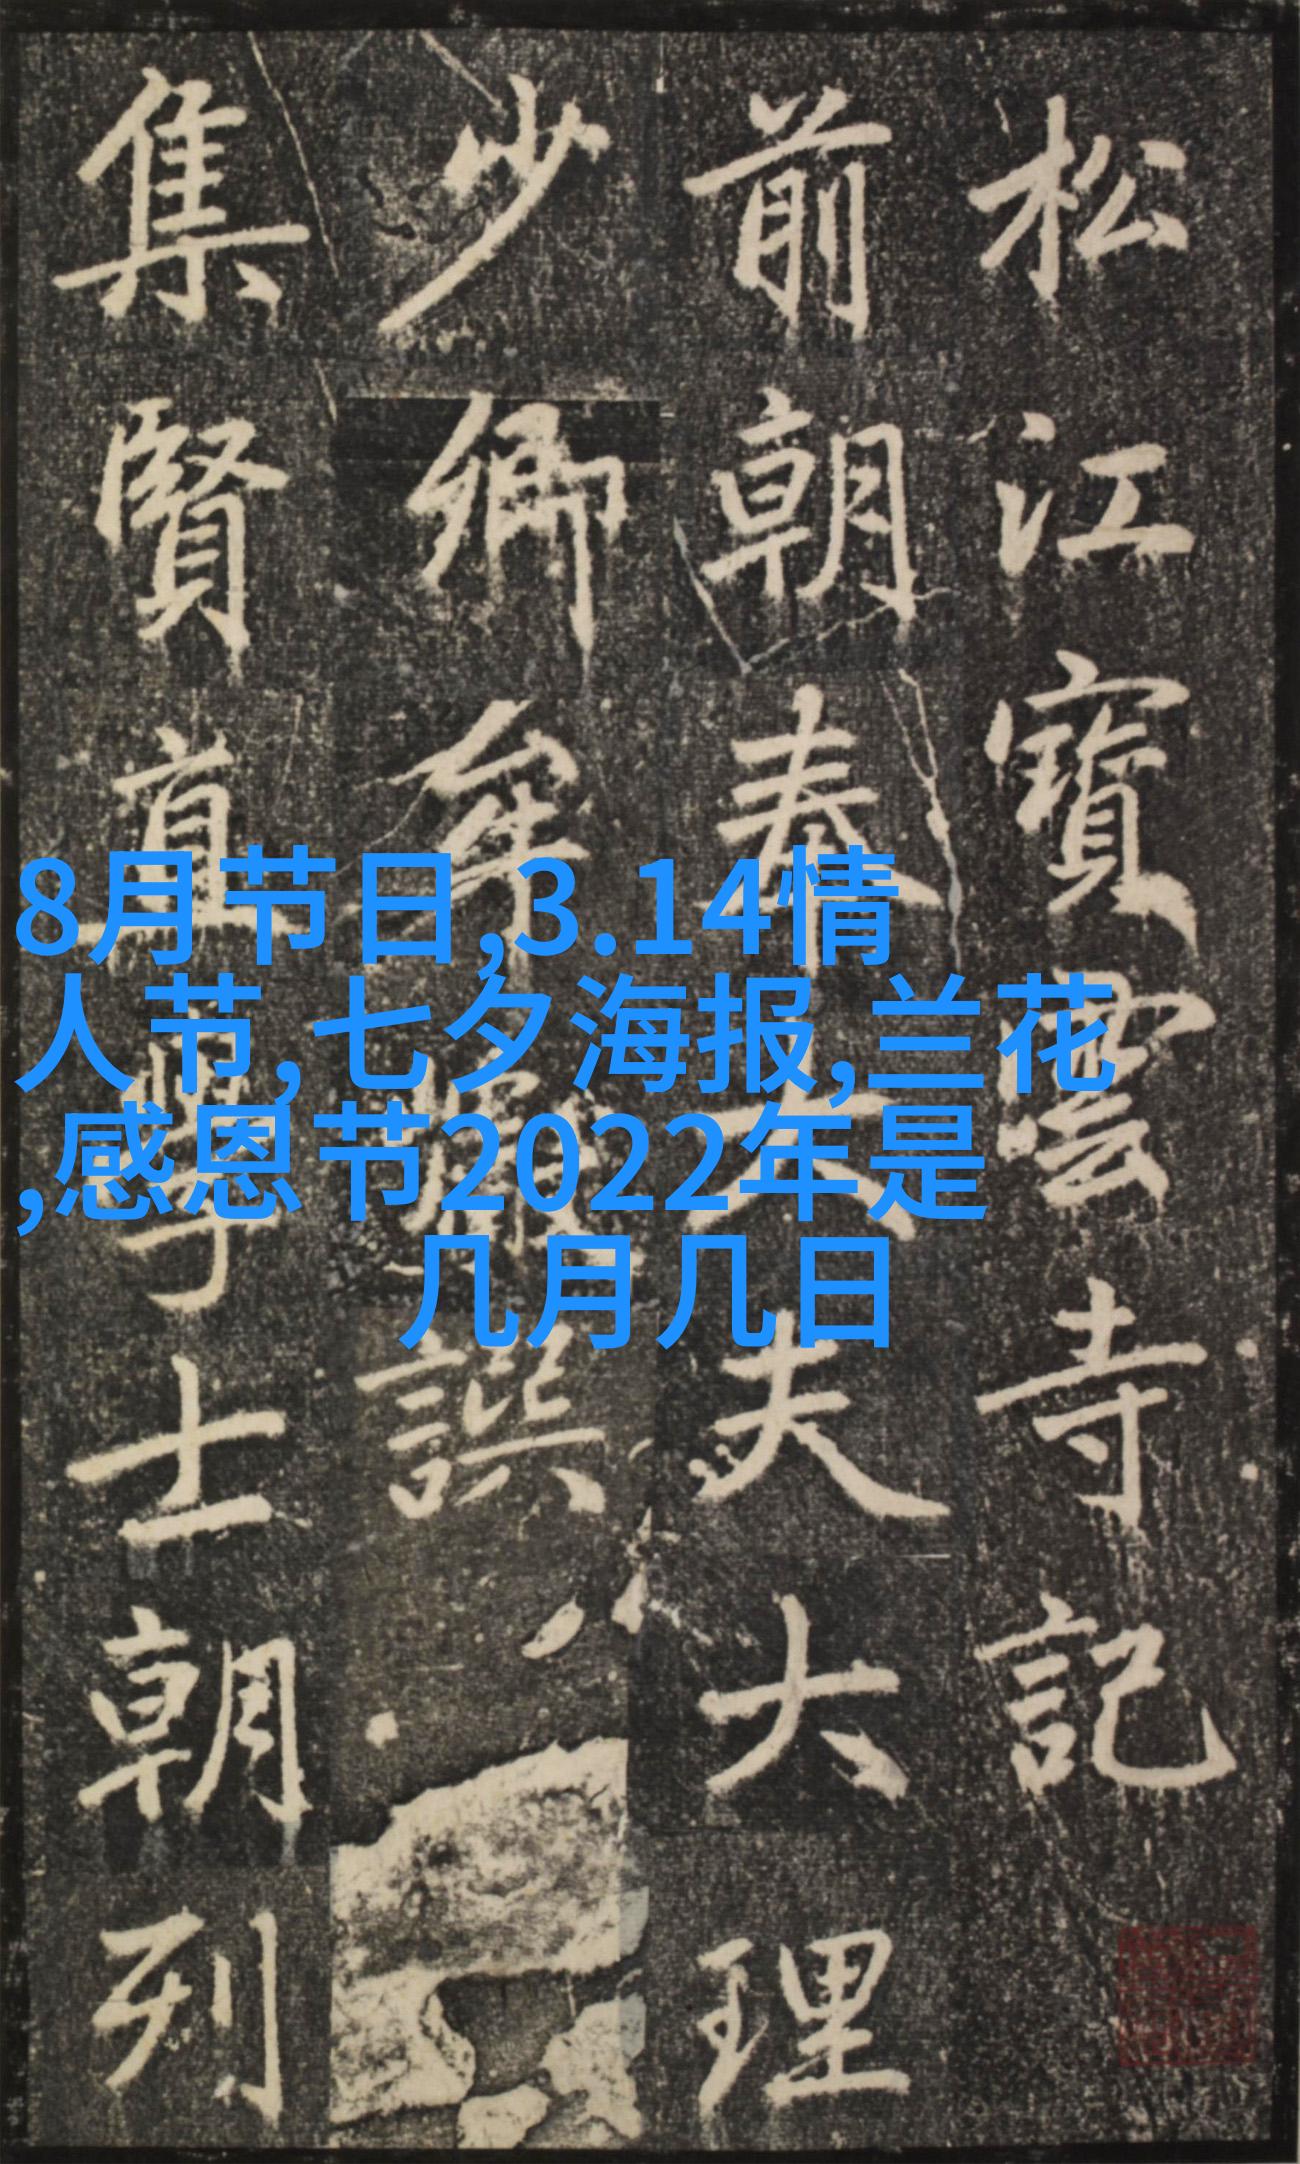 松江寶雲寺記
前朝奉大夫大理
少卿牟巘譔
集賢直學士朝列
8月节日,3.14情
人节,七夕海报,兰花
,感恩节2022年是
几月几日